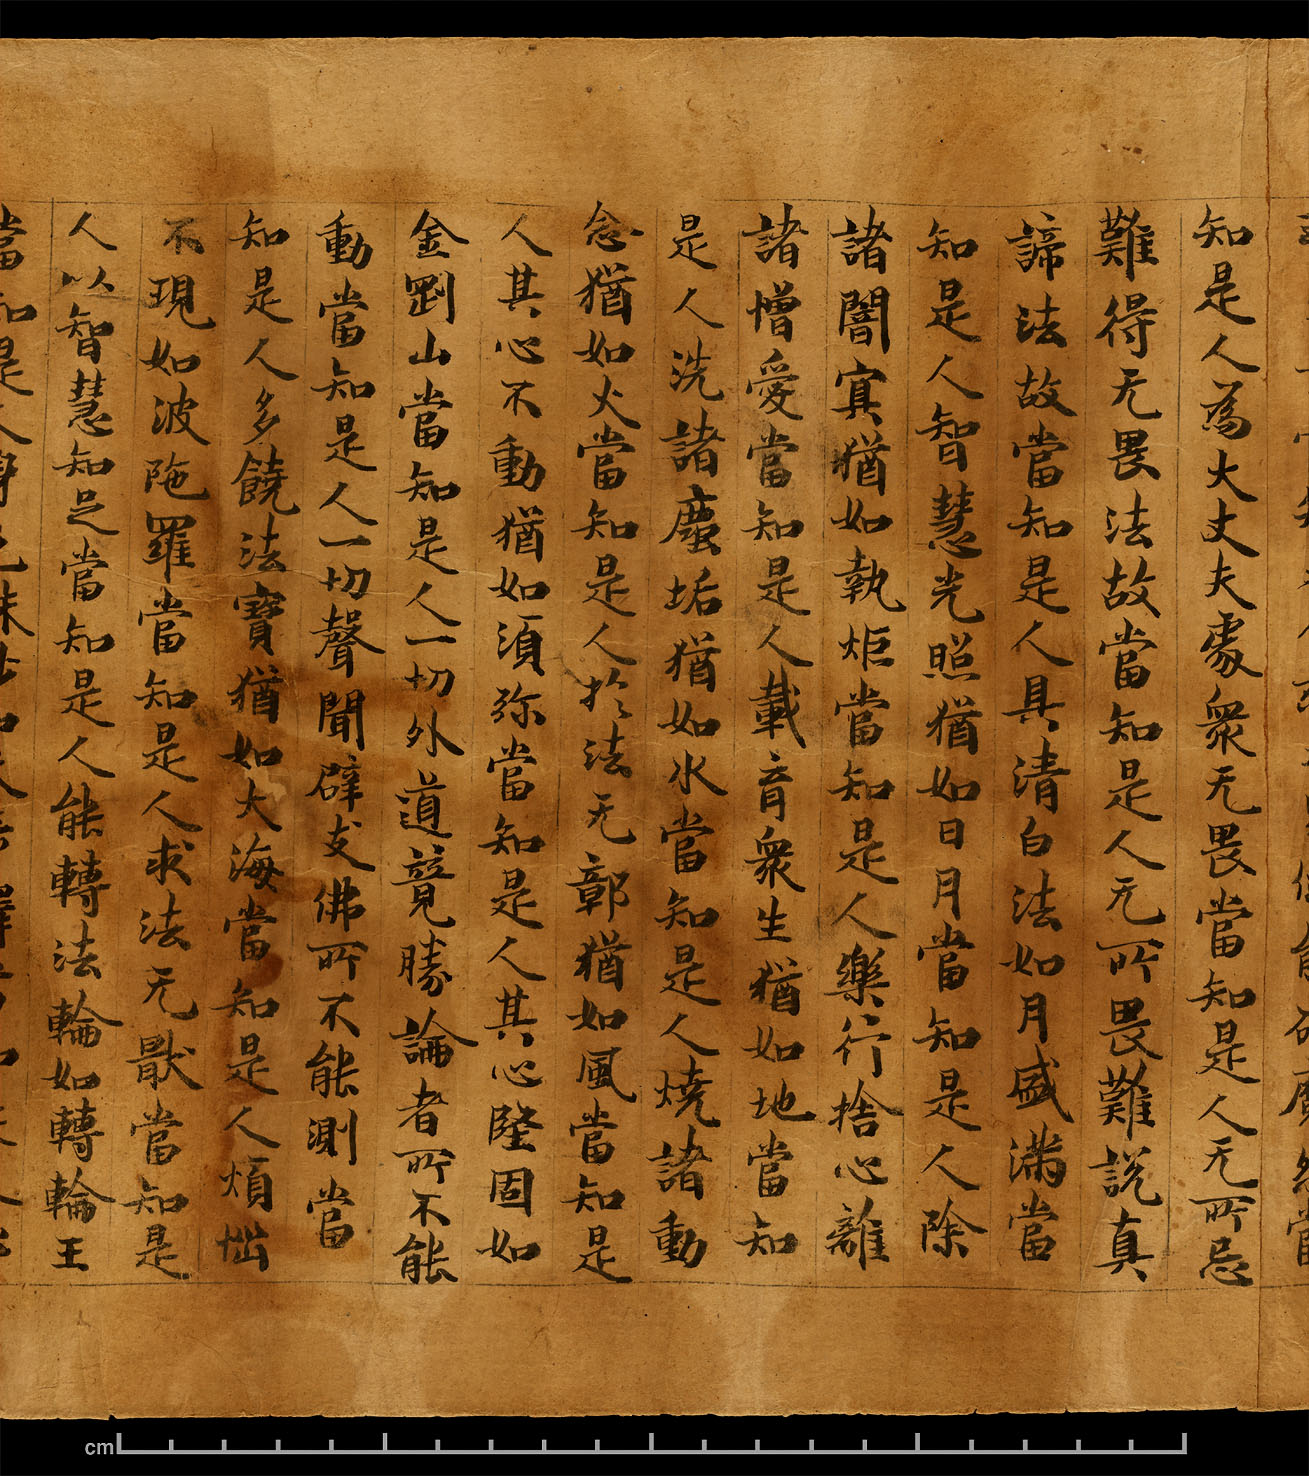 知是人為大丈夫處衆无畏當知是人无所忌
難得无畏法故當知是人无所畏難説真
諦法故當知是人具清白法如月盛滿當
知是人智慧光照猶如日月當知是人除
諸闇冥猶如執炬當知是人樂行捨心離
諸憎愛當知是人載育衆生猶如地當知
是人洗諸塵垢猶如水當知是人燒諸動
念猶如火當知是人於法无鄣猶如風當知是
人其心不動猶如須弥當知是人其心堅固如
金剛山當知是人一切外道競勝論者所不能
動當知是人一切聲聞辟支佛所不能測當
知是人多饒法寶猶如大海當知是人煩惱
不現如波陁羅當知是人求法无猒當知是
人以智慧知足當知是人能轉法輪如轉輪王
當知是人身色殊妙如天